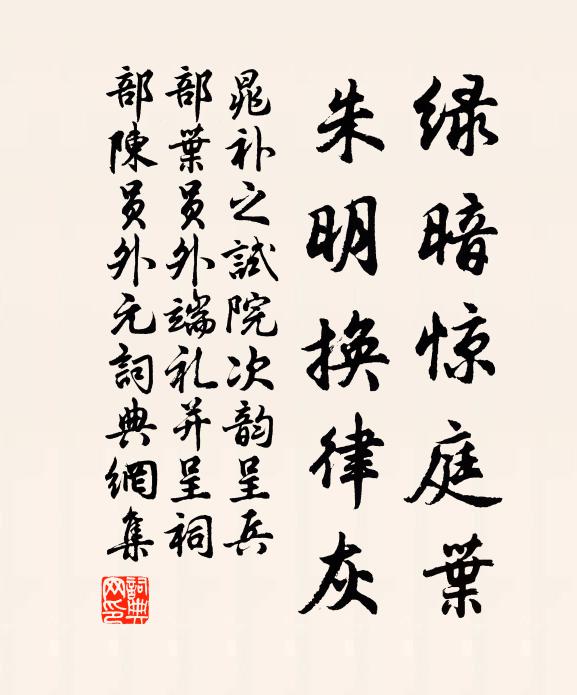 绿暗惊庭葉
朱明換律灰
晁补之試院次韵呈兵
部葉員外端礼并呈祠
部陳員外元詞典網集
詞典网印